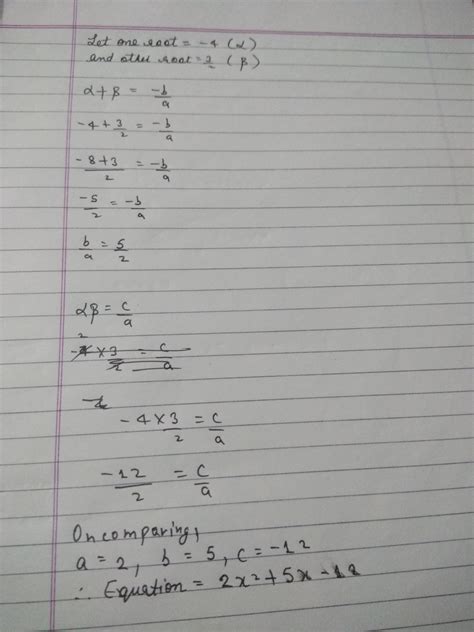 Let one root = -4 (α)
and other root = 3/2 (β)
α+β = -b/a
-4 + 3/2 = -b/a
-8+3/2 = -b/a
-5/2 = -b/a
b/a = 5/2
αβ = c/a
-4 × 3/2 = c/a
-4 × 3/2 = c/a
-12/2 = c/a
On comparing,
a = 2, b = 5, c = -12
∴ Equation = 2x²+5x-12